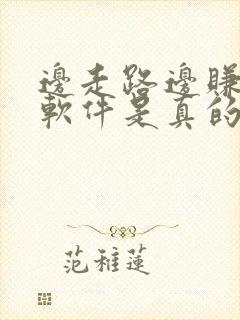 邊走路邊賺
軟件是真的
范稚蓮